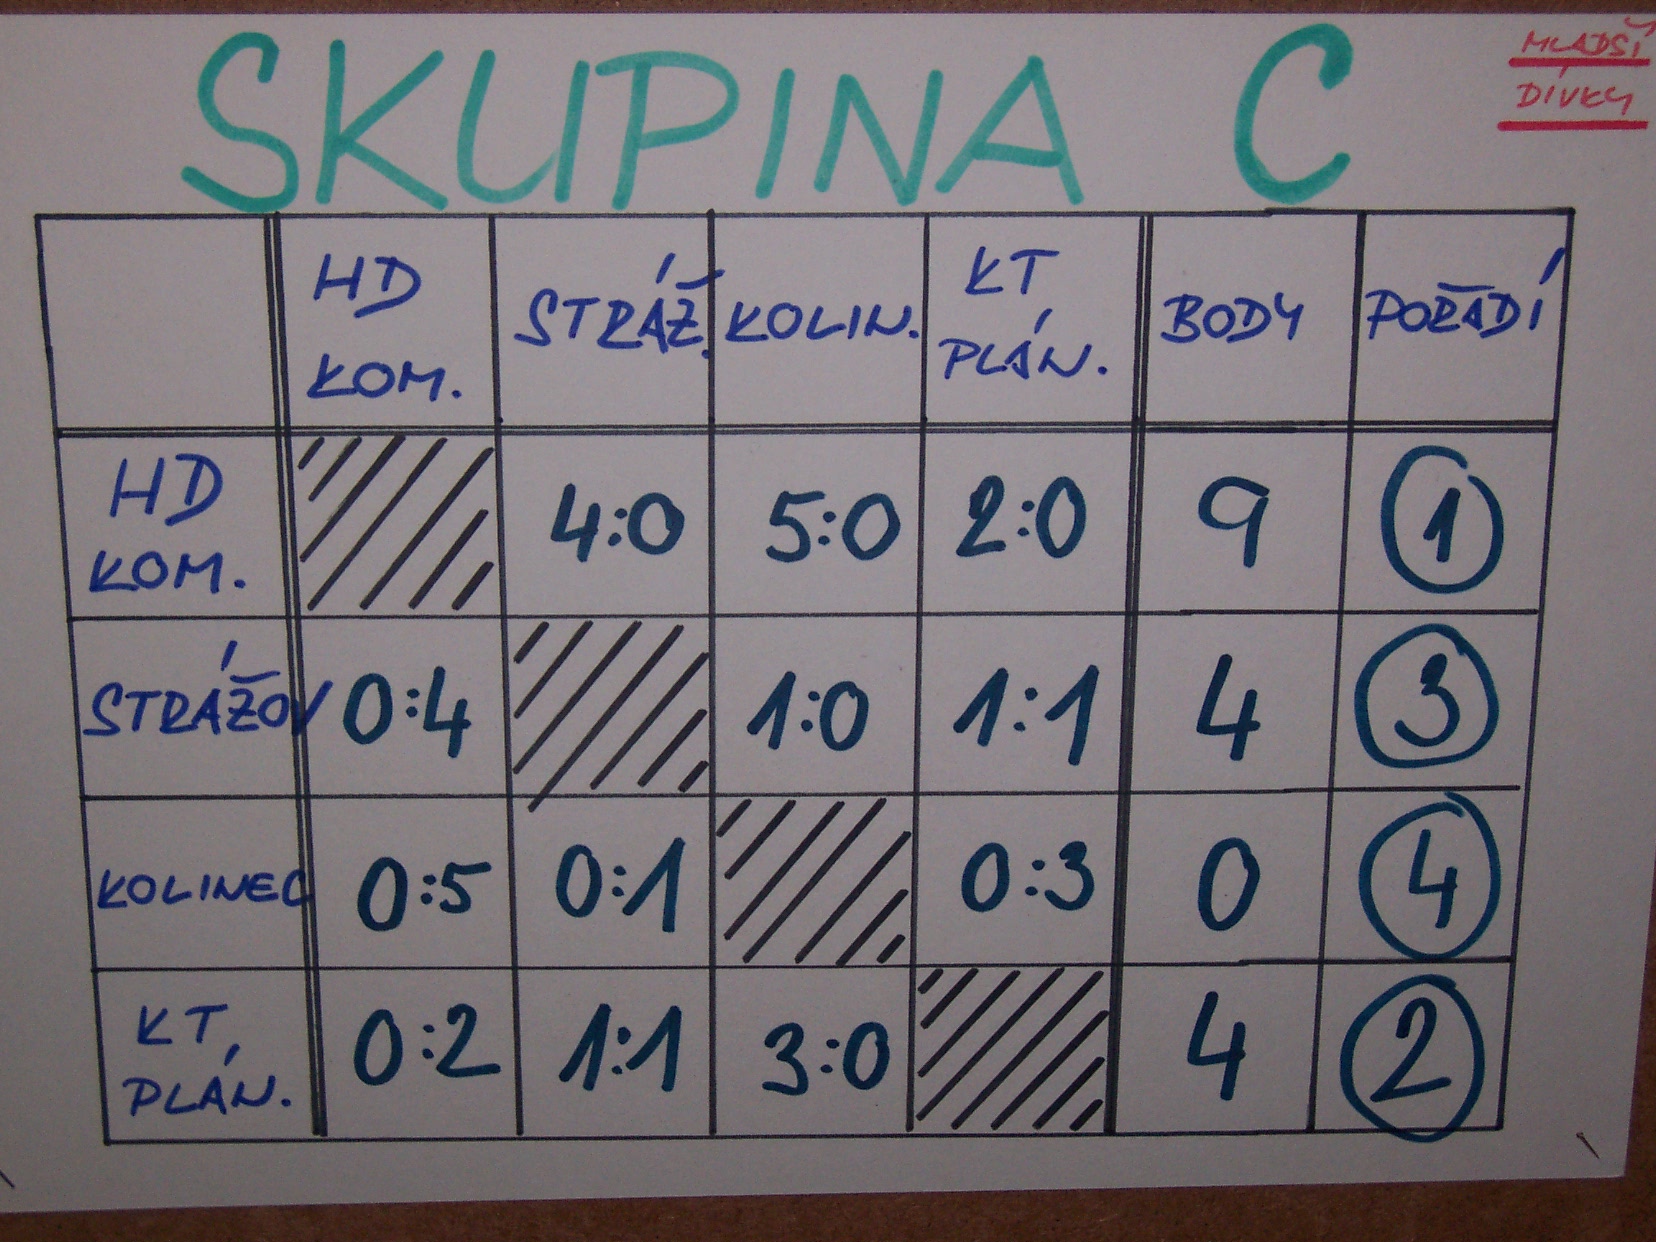 SKUPINA C
MLADŠÍ
DÍVKY
HD KOM. STRÁŽ. KOLIN. KT PLÁN. BODY POŘADÍ
HD KOM. 4:0 5:0 2:0 9 1
STRÁŽOV 0:4 1:0 1:1 4 3
KOLINEC 0:5 0:1 0:3 0 4
KT, PLÁN. 0:2 1:1 3:0 4 2